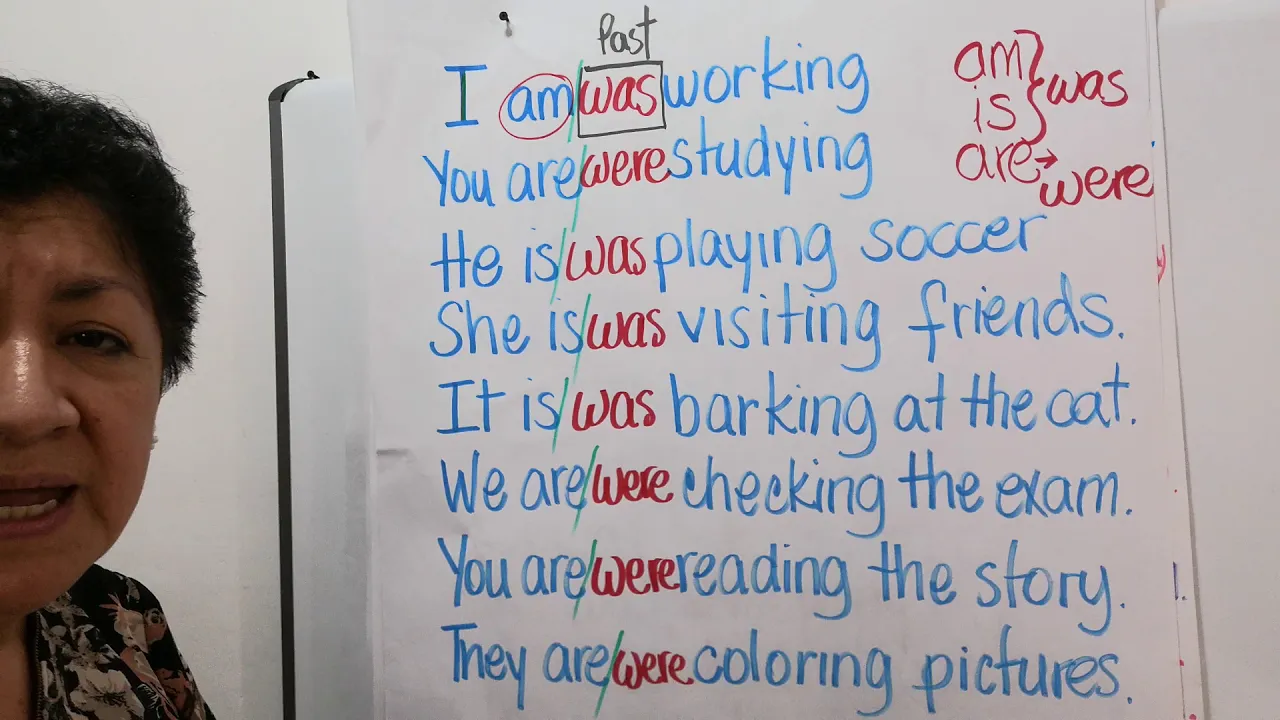 Past
I am/was working
You are/were studying
He is/was playing soccer
She is/was visiting friends.
It is/was barking at the cat.
We are/were checking the exam.
You are/were reading the story.
They are/were coloring pictures.
am } was
is
are → were